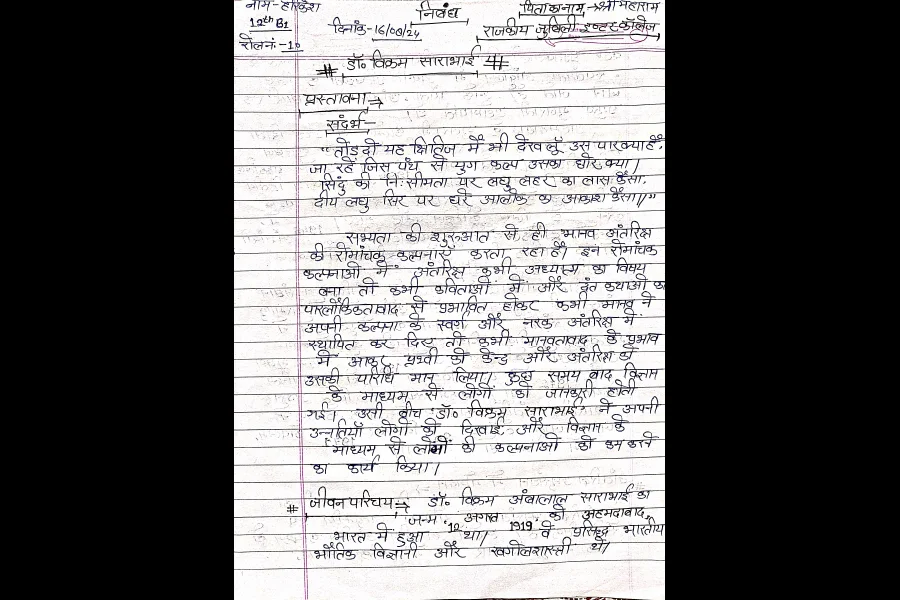 नाम-हरिकेश
निबंध
पिता का नाम → श्री महाराम
12th B1
दिनांक- 16/08/24
राजकीय जुबिली इण्टर कॉलेज
रोल नं:-10
# डॉ० विक्रम साराभाई #
प्रस्तावना →
संदर्भ-
"तोड़ दो यह क्षितिज मैं भी देख लूँ उस पार क्या है,
जा रहे जिस पंथ से युग कल्प उसका छोर क्या।
सिंधु की निःसीमता पर लघु लहर का लास कैसा,
दीप लघु सिर पर धरे आलोक का आकाश कैसा॥"
सभ्यता की शुरुआत से ही मानव अंतरिक्ष
की रोमांचक कल्पनाएँ करता रहा है। इन रोमांचक
कल्पनाओं में अंतरिक्ष कभी अध्यात्म का विषय
बना तो कभी कविताओं में और दंत कथाओं का
पारलौकिकतावाद से प्रभावित होकर कभी मानव ने
अपनी कल्पना के स्वर्ग और नरक अंतरिक्ष में
स्थापित कर दिए तो कभी मानवतावाद के प्रभाव
में आकर पृथ्वी को केन्द्र और अंतरिक्ष को
उसकी परिधि मान लिया। कुछ समय बाद विज्ञान
के माध्यम से लोगों को जानकारी होती
गई। उसी बीच 'डॉ० विक्रम साराभाई' ने अपनी
उन्नतियाँ लोगों को दिखाई और विज्ञान के
माध्यम से लोगों की कल्पनाओं को कम करने
का कार्य किया।
# जीवन परिचय → डॉ० विक्रम अंबालाल साराभाई का
जन्म '12 अगस्त 1919' को अहमदाबाद,
भारत में हुआ था। वे प्रसिद्ध भारतीय
भौतिक विज्ञानी और खगोलशास्त्री थे।